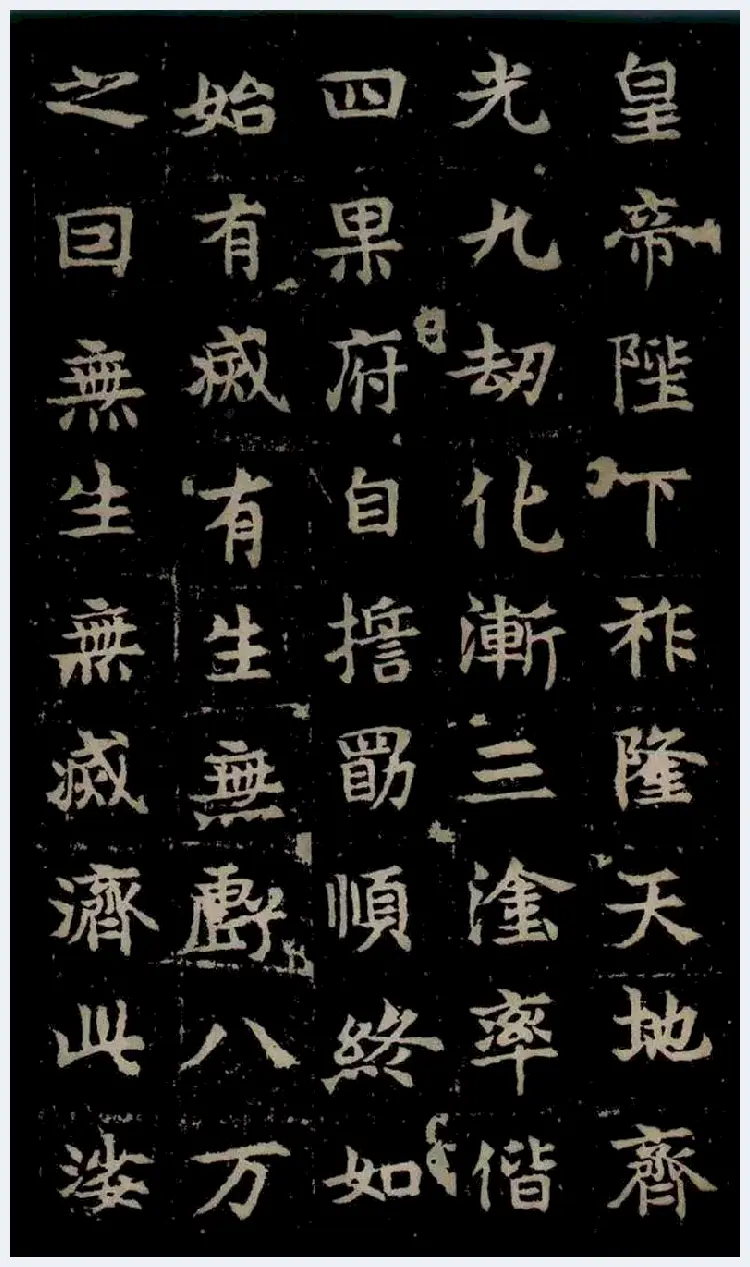 皇帝陛下祚隆天地齊
光九劫化漸三塗率偕
四果府自擔勗順終如
始有滅有生無虧八万
之曰無生無滅濟此娑